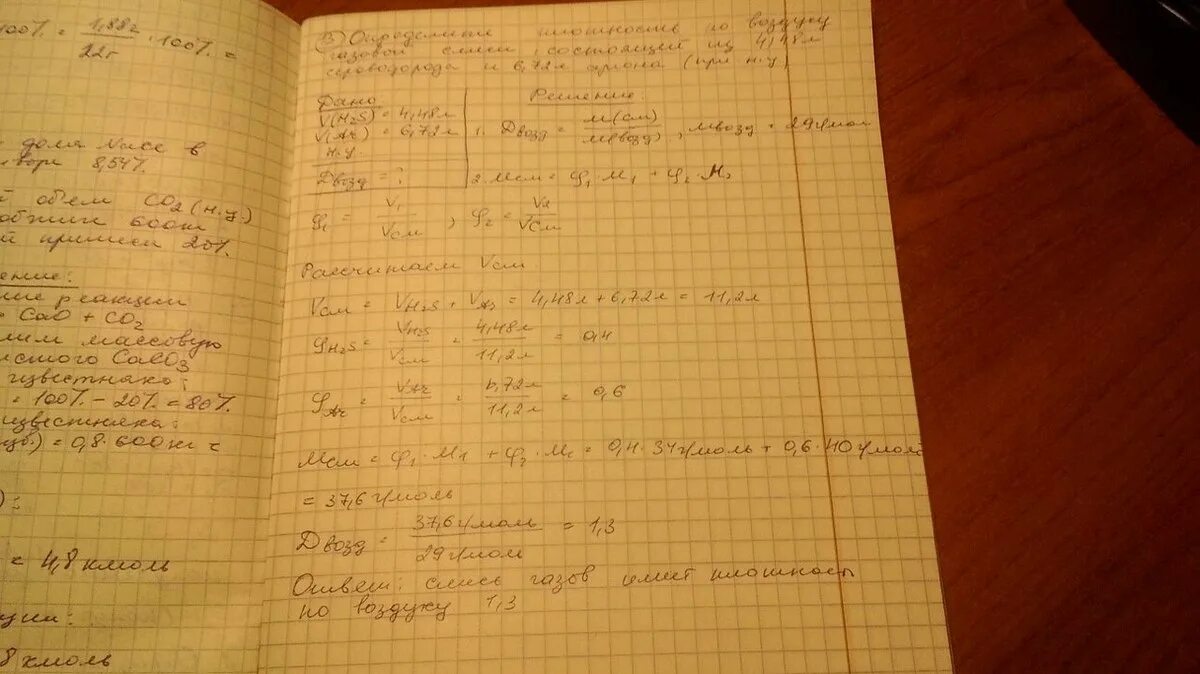 100% = 1,88г / 22г · 100% =
доля NaCl в
8,54%.
объем CO2 (н.у.)
600кг
примеси 20%.
ение:
ние реакции
= CaO + CO2
лим массовую
истого CaCO3
известняко:
= 100% - 20% = 80%.
известняка:
) = 0,8·600кг =
):
= 4,8 кмоль
ции:
8 кмоль
3) Определите плотность по воздуху
газовой смеси, состоящей из 4,48л
сероводорода и 6,72л аргона (при н.у)
Дано
V(H2S) = 4,48л
V(Ar) = 6,72л
н.у.
Dвозд = ?
Решение:
1. Dвозд = M(см) / M(возд), Mвозд = 29г/моль
2. Mсм = φ1·M1 + φ2·M2
φ1 = V1 / Vсм, φ2 = V2 / Vсм
Рассчитаем Vсм
Vсм = VH2S + VAr = 4,48л + 6,72л = 11,2л
φH2S = VH2S / Vсм = 4,48л / 11,2л = 0,4
φAr = VAr / Vсм = 6,72л / 11,2л = 0,6
Mсм = φ1·M1 + φ2·M2 = 0,4·34г/моль + 0,6·40г/моль
= 37,6г/моль
Dвозд = 37,6г/моль / 29г/моль = 1,3
Ответ: смесь газов имеет плотность
по воздуху 1,3